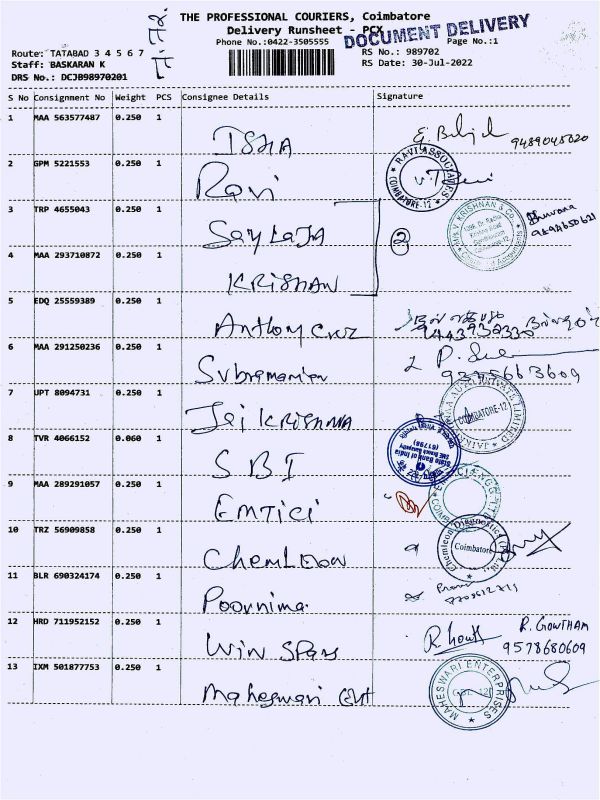 THE PROFESSIONAL COURIERS, Coimbatore
Delivery Runsheet - PCX
DOCUMENT DELIVERY
Phone No.:0422-3505555
Page No.:1
Route: TATABAD 3 4 5 6 7
RS No.: 989702
Staff: BASKARAN K
RS Date: 30-Jul-2022
DRS No.: DCJB98970201
S No Consignment No Weight PCS Consignee Details Signature
1 MAA 563577487 0.250 1
ISHA
9489045020
2 GPM 5221553 0.250 1
Ravi
RAVI ASSOCIATES
COIMBATORE-12
3 TRP 4655043 0.250 1
2
M/s V. KRISHNAN & CO.
Chartered Accountants
Bhuvana
4 MAA 293710872 0.250 1
KRISHNAN
5 EDQ 25559389 0.250 1
Anthony Cruz
6 MAA 291250236 0.250 1
Subramanian
7 UPT 8094731 0.250 1
Jai KRISHNA
COIMBATORE-12
8 TVR 4066152 0.060 1
SBI
State Bank of India
(61798)
9 MAA 289291057 0.250 1
EMTICI
10 TRZ 56909858 0.250 1
Chemleon
Coimbatore
11 BLR 690324174 0.250 1
Poornima
12 HRD 711952152 0.250 1
Win Spars
R. GOWTHAM
9578680609
13 IXM 501877753 0.250 1
Maheswari Ent
MAHESWARI ENTERPRISES